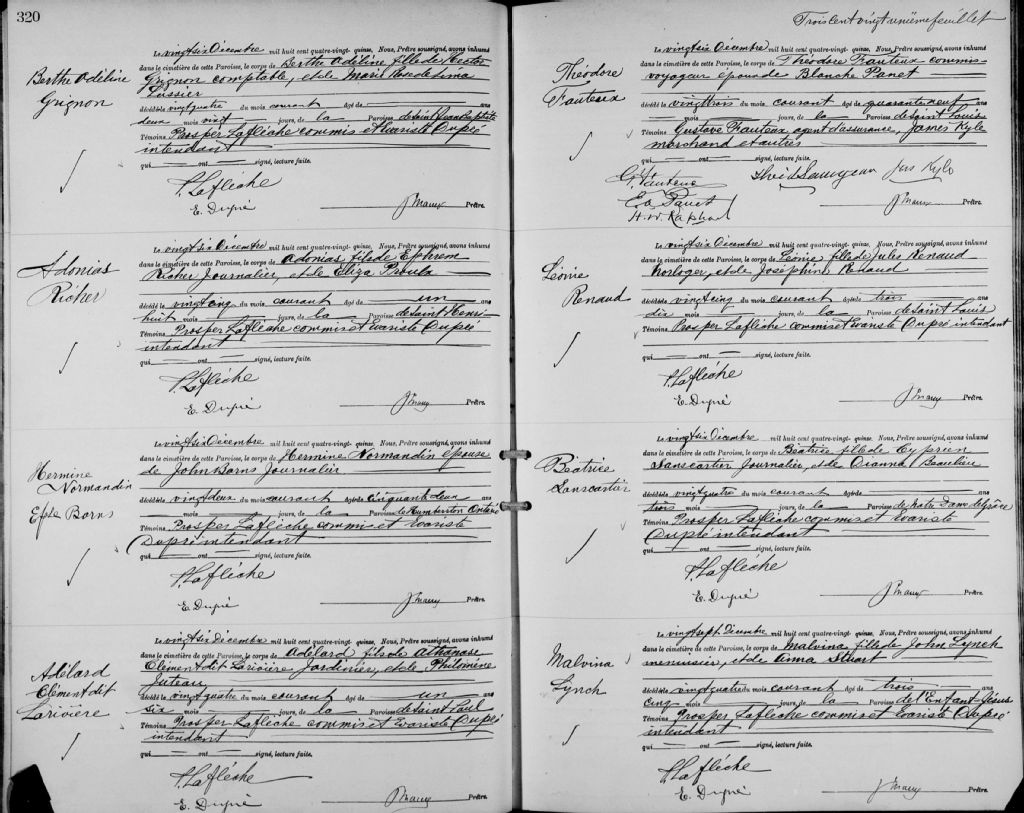 320
Berthe Adéline
Grignon
Le vingt six Décembre mil huit cent quatre-vingt- quinze, Nous, Prêtre soussigné, avons inhumé
dans le cimetière de cette Paroisse, le corps de Berthe Adéline fille de Hector
Grignon comptable, et de Marie Rose de Lima
Lussier
décédée vingt quatre du mois courant âgé de ans
deux mois vingt jours, de la Paroisse de Saint Jean Baptiste
Témoins Prosper Laflèche commis et Evariste Dupré
intendant
qui ont signé, lecture faite.
P. Laflèche
E. Dupré
Prêtre.
Adonias
Richer
Le vingt six Décembre mil huit cent quatre-vingt- quinze, Nous, Prêtre soussigné, avons inhumé
dans le cimetière de cette Paroisse, le corps de Adonias fils de Ephrem
Richer Journalier, et de Eliza Proulx
décédé le vingt cinq du mois courant âgé de un ans
huit mois jours, de la Paroisse de Saint Henri
Témoins Prosper Laflèche commis et Evariste Dupré
intendant
qui ont signé, lecture faite.
P. Laflèche
E. Dupré
Prêtre.
Hermine
Normandin
Epse de Borns
Le vingt six Décembre mil huit cent quatre-vingt- quinze, Nous, Prêtre soussigné, avons inhumé
dans le cimetière de cette Paroisse, le corps de Hermine Normandin épouse
de John Borns Journalier
décédée vingt deux du mois courant âgée de cinquante deux ans
mois jours, de la Paroisse de Humberston Ontario
Témoins Prosper Laflèche commis et Evariste
Dupré intendant
qui ont signé, lecture faite.
P. Laflèche
E. Dupré
Prêtre.
Adélard
Clément dit
Larivière
Le vingt six Décembre mil huit cent quatre-vingt- quinze, Nous, Prêtre soussigné, avons inhumé
dans le cimetière de cette Paroisse, le corps de Adélard fils de Athanase
Clément dit Larivière Jardinier, et de Philomène
Juteau
décédé le vingt quatre du mois courant âgé de un ans
six mois jours, de la Paroisse de Saint Paul
Témoins Prosper Laflèche commis et Evariste Dupré
intendant
qui ont signé, lecture faite.
P. Laflèche
E. Dupré
Prêtre.
Trois cent vingt unième feuillet
Théodore
Fauteux
Le vingt six Décembre mil huit cent quatre-vingt- quinze, Nous, Prêtre soussigné, avons inhumé
dans le cimetière de cette Paroisse, le corps de Théodore Fauteux commis
voyageur époux de Blanche Panet
décédé le vingt trois du mois courant âgé de quarante neuf ans
mois jours, de la Paroisse de Saint Louis
Témoins Gustave Fauteux agent d'assurance, James Kyle
marchand et autres
qui ont signé, lecture faite.
G. Fauteux
Jas Kyle
Panet
H. W. Raphael
Prêtre.
Léonie
Renaud
Le vingt six Décembre mil huit cent quatre-vingt- quinze, Nous, Prêtre soussigné, avons inhumé
dans le cimetière de cette Paroisse, le corps de Léonie fille de Jules Renaud
horloger, et de Joséphine Renaud
décédée vingt cinq du mois courant âgée de trois ans
dix mois jours, de la Paroisse de Saint Louis
Témoins Prosper Laflèche commis et Evariste Dupré intendant
qui ont signé, lecture faite.
P. Laflèche
E. Dupré
Prêtre.
Béatrice
Sanscartier
Le vingt six Décembre mil huit cent quatre-vingt- quinze, Nous, Prêtre soussigné, avons inhumé
dans le cimetière de cette Paroisse, le corps de Béatrice fille de Cyprien
Sanscartier Journalier, et de Beaulieu
décédée vingt quatre du mois courant âgé de ans
trois mois jours, de la Paroisse de Notre Dame de Grâce
Témoins Prosper Laflèche commis et Evariste
Dupré intendant
qui ont signé, lecture faite.
P. Laflèche
E. Dupré
Prêtre.
Malvina
Lynch
Le vingt sept Décembre mil huit cent quatre-vingt- quinze, Nous, Prêtre soussigné, avons inhumé
dans le cimetière de cette Paroisse, le corps de Malvina fille de John Lynch
menuisier, et de Anna Stuart
décédée vingt quatre du mois courant âgé de trois ans
cinq mois jours, de la Paroisse de l'Enfant-Jésus
Témoins Prosper Laflèche commis et Evariste Dupré
intendant
qui ont signé, lecture faite.
P. Laflèche
E. Dupré
Prêtre.